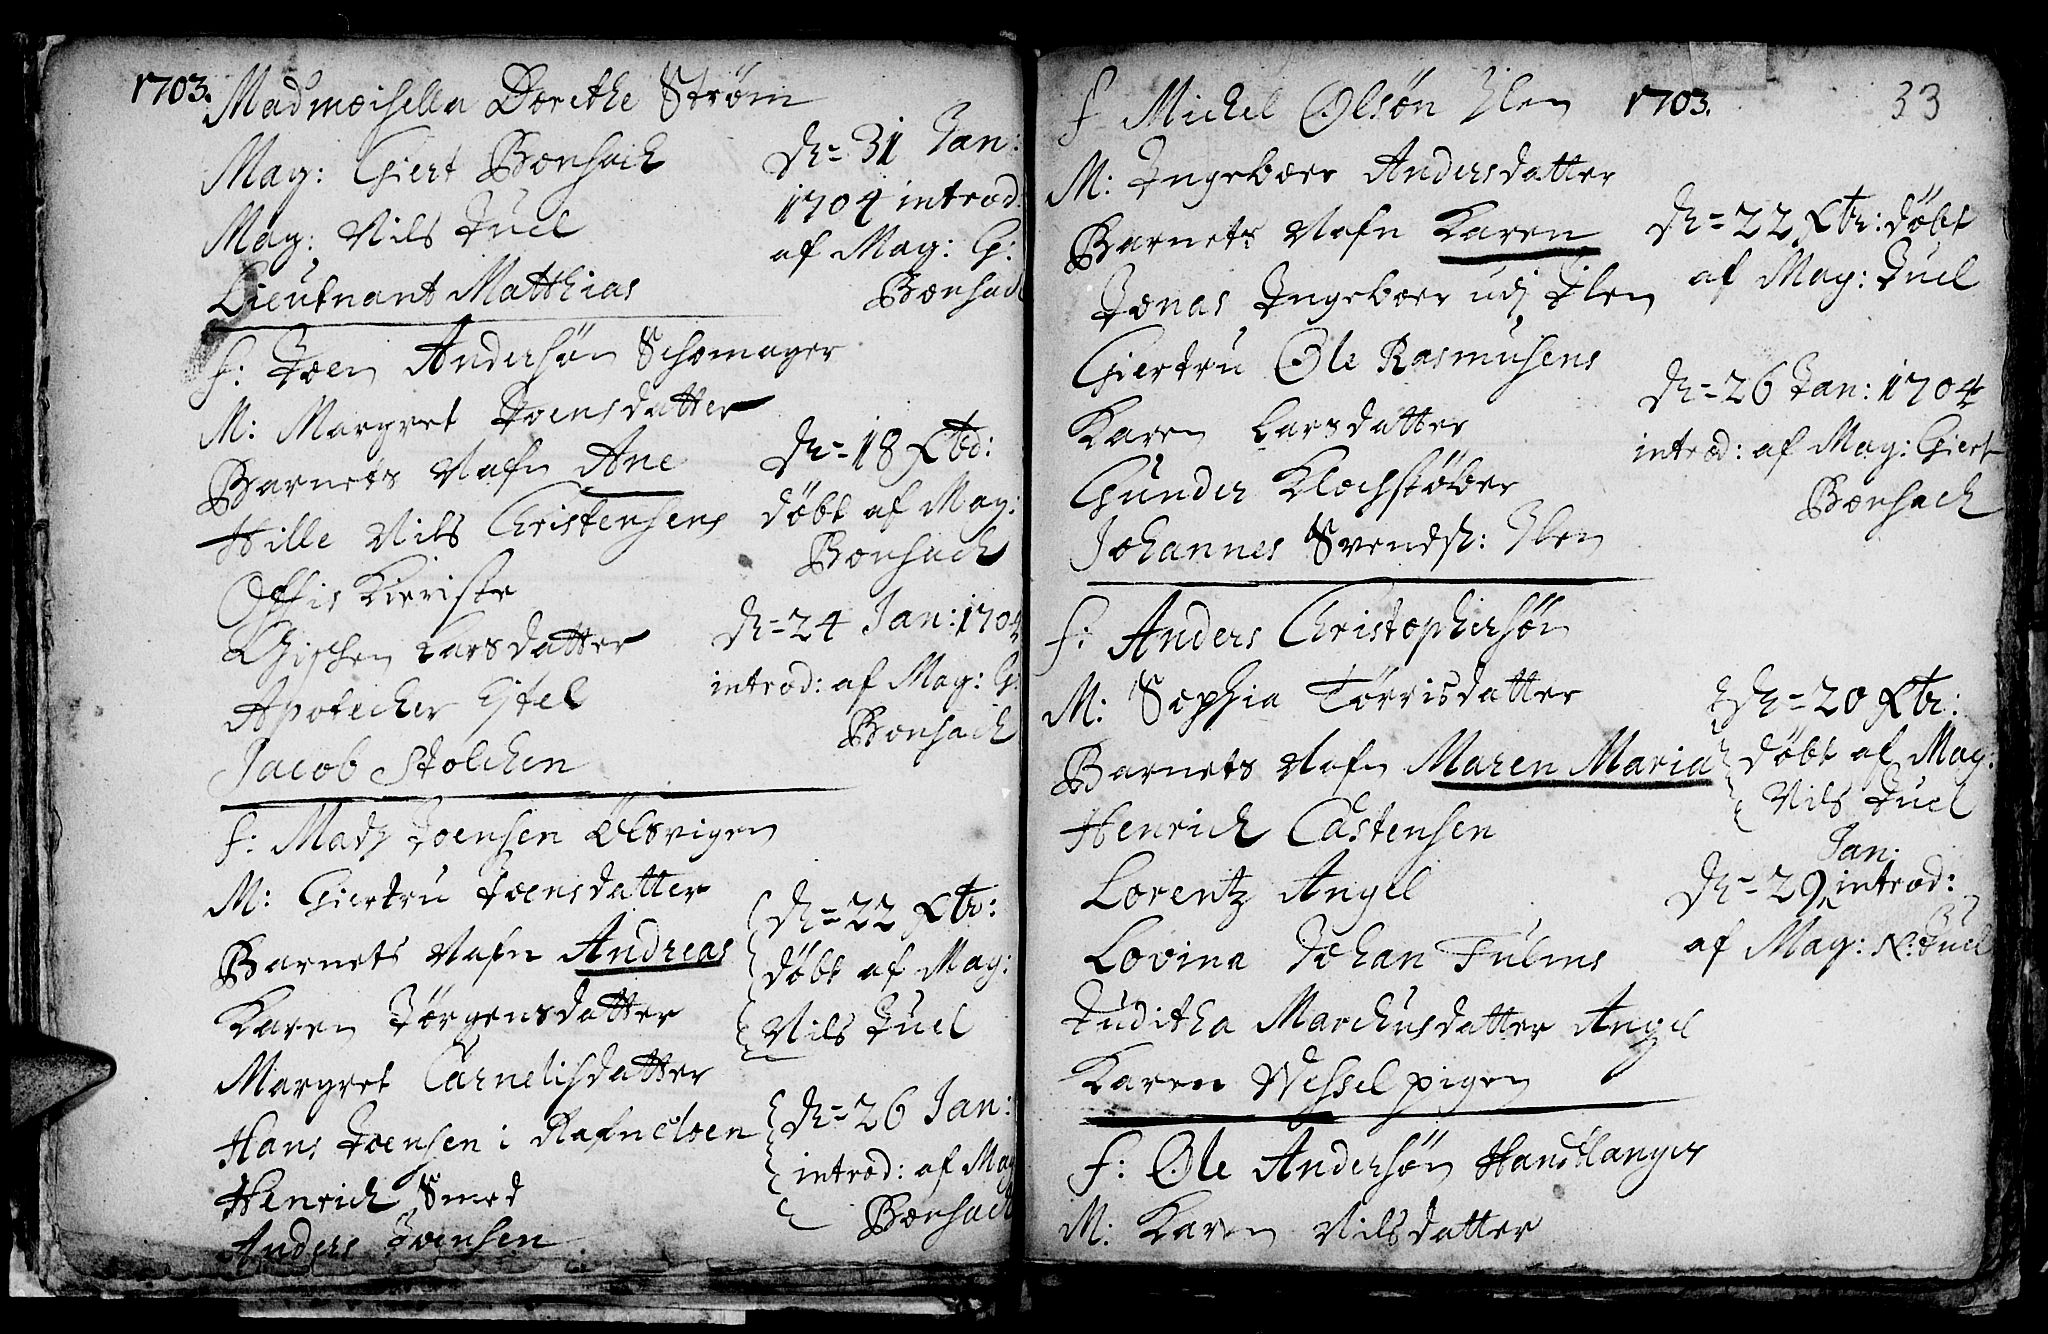 1703.
Madmoisella Dorethe Strøm
Mag: Giert Bonsach
Mag: Nils Juel
Lieutnant Matthias
Dn= 31 Jan:
1704 introd:
af Mag: G:
Bonsach
f: Joen Andersøn Schomager
M: Margret Joensdatter
Barnets Nafn Ane
Hille Nils Christensens
Larsdatter
Apotecher
Jacob Stolchen
Dn= 18 Xbr:
døbt af Mag:
Bonsach
Dn= 24 Jan: 1704
introd: af Mag: G:
Bonsach
f: Mads Joensen Elsvigen
M: Giertru Joensdatter
Barnets Nafn Andreas
Karen Jørgensdatter
Margret Cornelisdatter
Hans Joensen i Rafncloen
Henrich Smed
Anders Joensen
Dn= 22 Xbr:
døbt af Mag:
Nils Juel
Dn= 26 Jan:
introd: af Mag
Bonsach
f Michel Olsøn Ilen 1703. 33
M: Ingeboer Andersdatter
Barnets Nafn Karen
Jonas Ingeboer udj Ilen
Giertru Ole Rasmusens
Karen Larsdatter
Gunder Klochstøber
Johannes Svends: Ilen
Dn= 22 Xbr: døbt
af Mag: Juel
Dn= 26 Jan: 1704
introd: af Mag: Giert
Bonsach
f: Anders Christophersøn
M: Sophia Tørrisdatter
Barnets Nafn Maren Maria
Henrich Castensen
Lorentz Angel
Lovina Johan Fulms
Juditha Marchusdatter Angel
Karen Wessel pigen
Dn= 20 Xbr:
døbt af Mag:
Nils Juel
Jan:
Dn= 29 introd:
af Mag: N: Juel
f: Ole Andersøn Handtlanger
M: Karen Nilsdatter